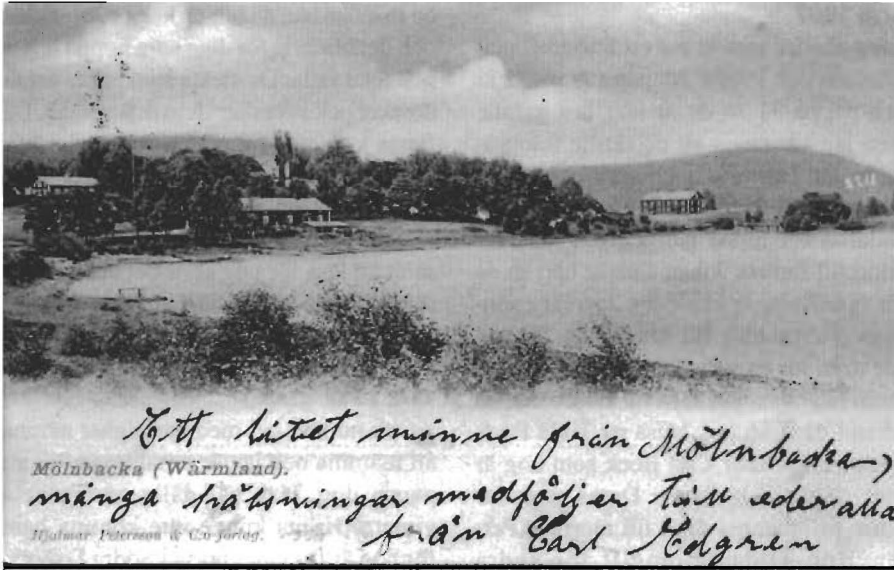 Ett litet minne från Mölnbacka,
Mölnbacka (Wärmland).
många hälsningar medföljer till eder alla
Hjalmar Petersson & C:o förlag.
från Carl Edgren